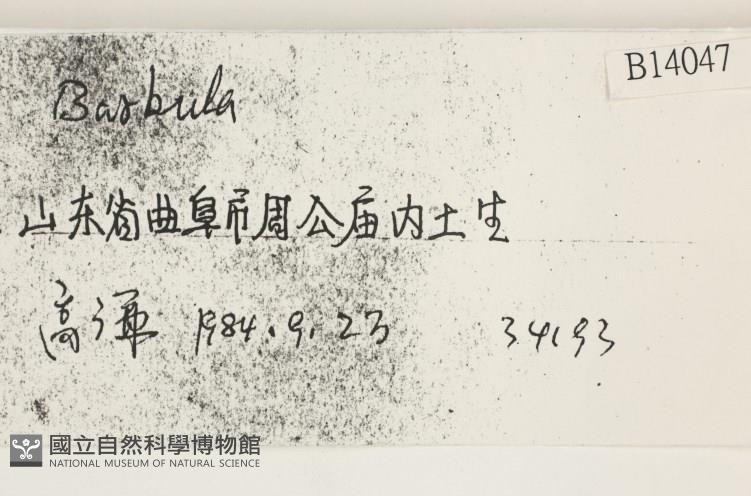 B14047
Barbula
山东省曲阜市周公庙内土生
高谦 1984.9.23 34193
國立自然科學博物館
NATIONAL MUSEUM OF NATURAL SCIENCE